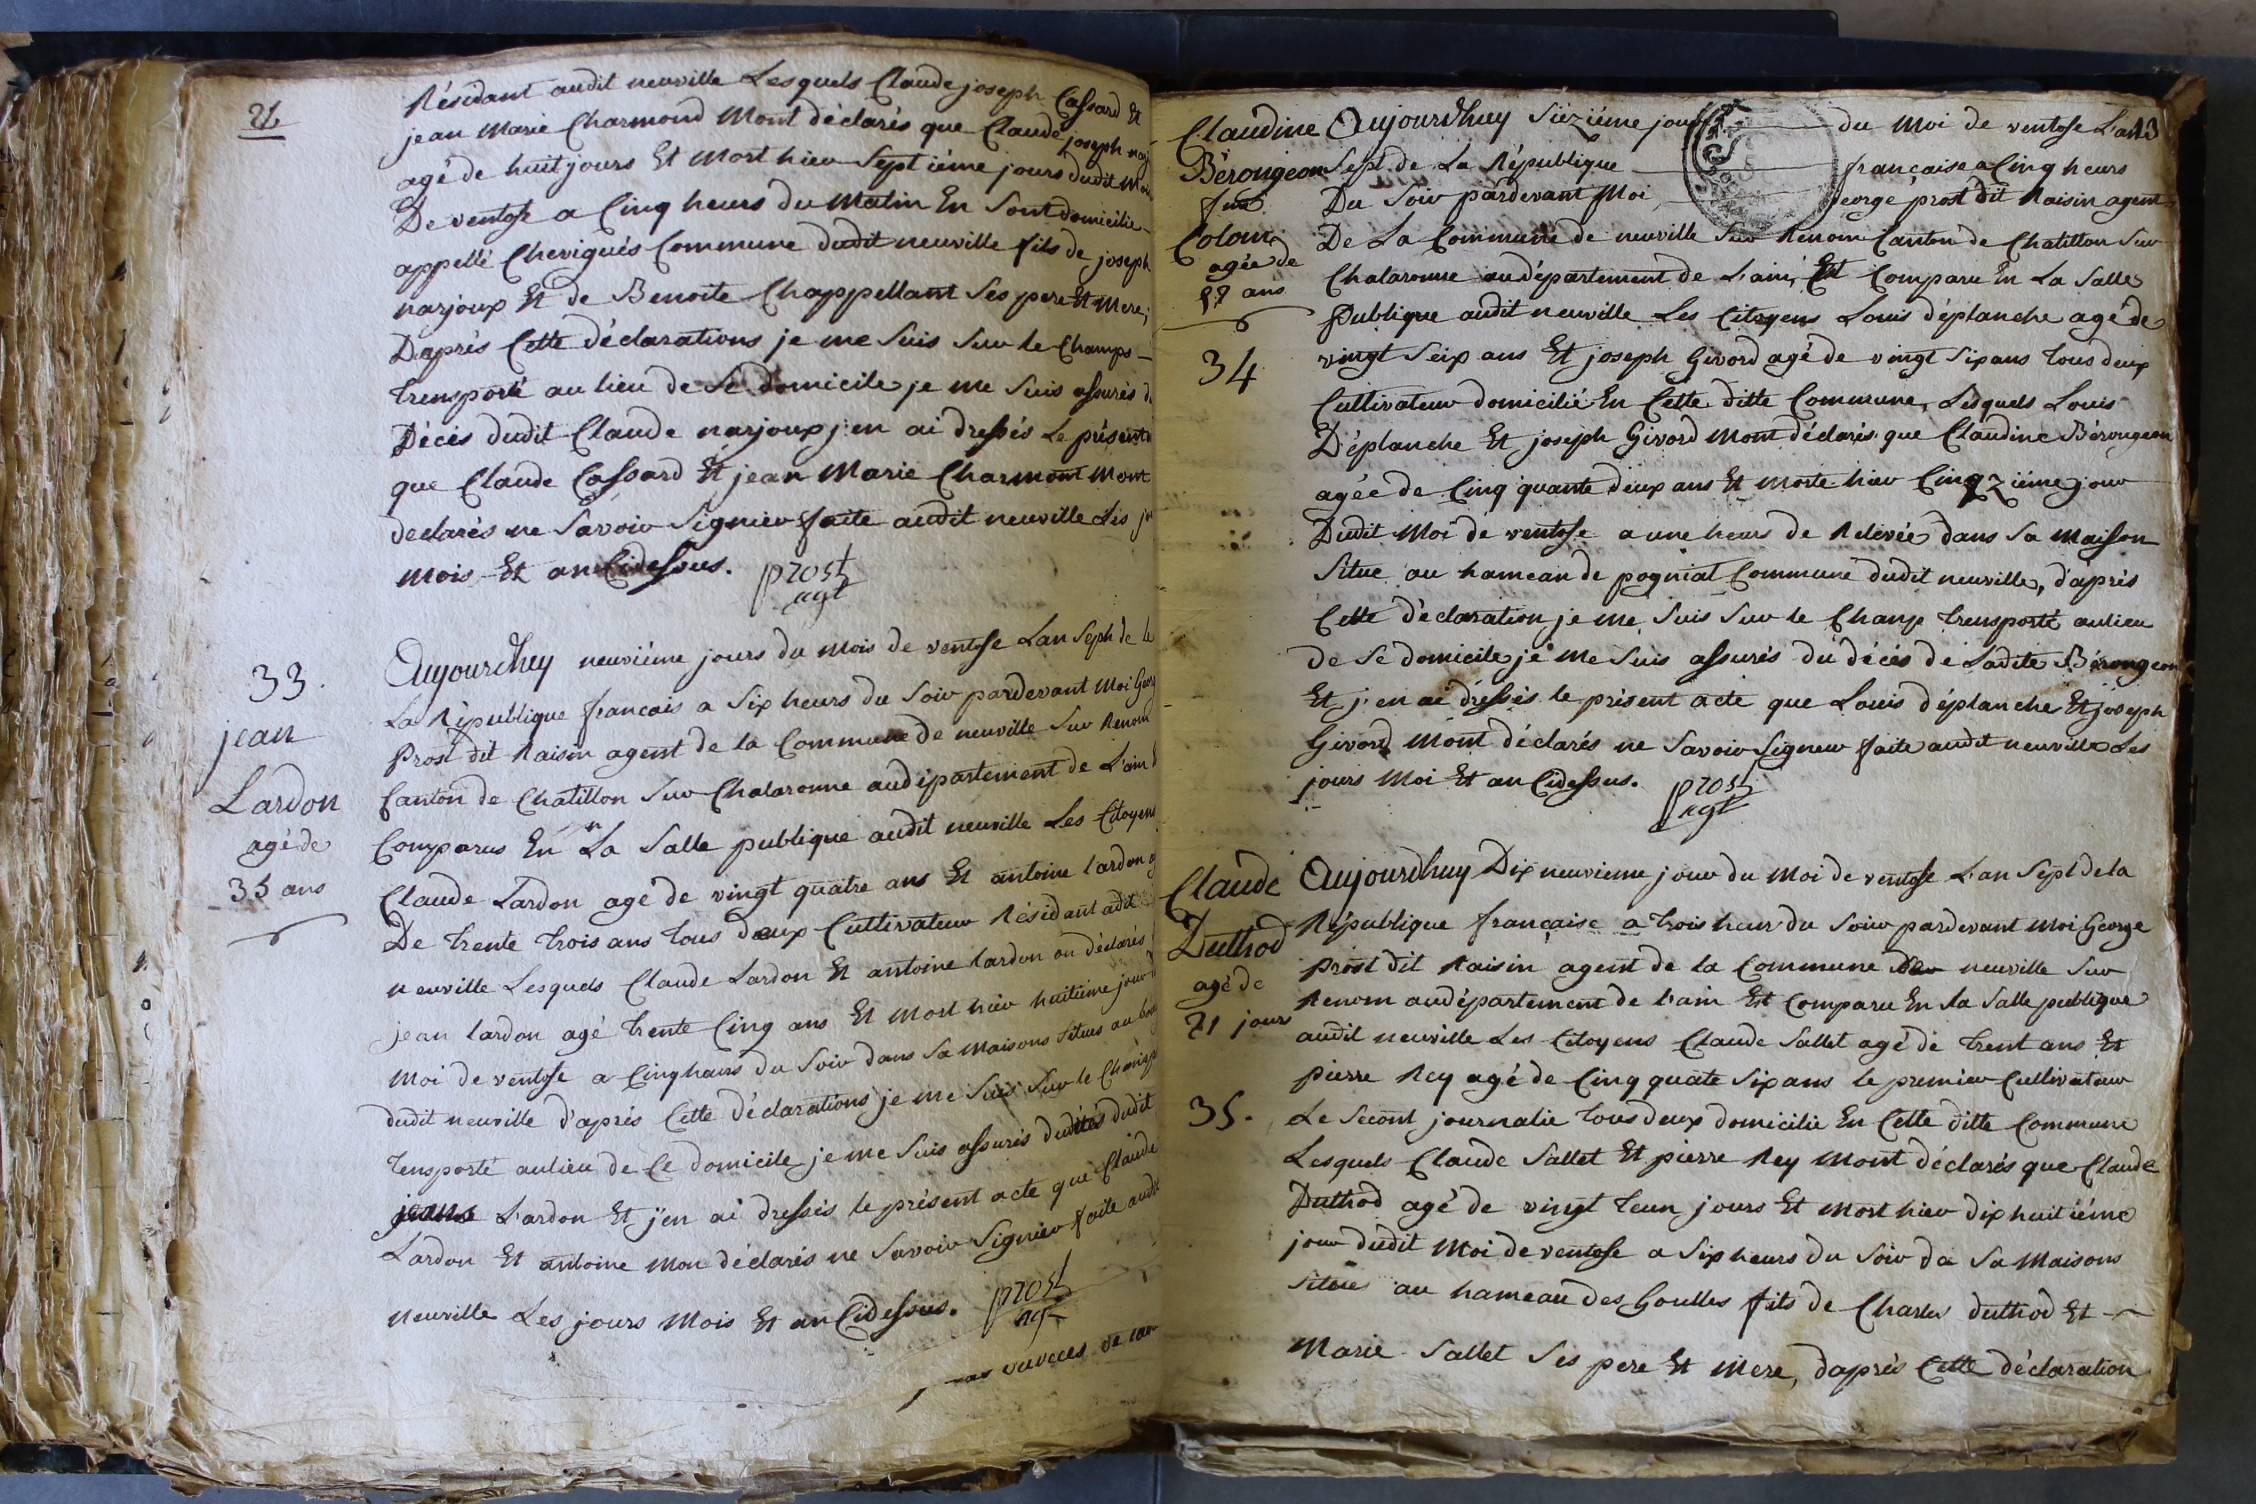 Résidant audit neuville Lesquels Claude joseph Cassard Et
jean Marie Charmond Mont déclarés que Claude joseph
agé de huit jours Et Mort hier Septiéme jours dudit
De ventose a Cinq heurs du Matin En Sont domicilie
appellé Chevigués Commune dudit neuville fils de joseph
narjoux Et de Benoite Chappellant Ses pere Et Mere,
Daprés Cette déclarations je me Suis Sur le Champs
trensporté au lieu de Se domicile je me Suis assurés
Décés dudit Claude narjoux j'en ai dressés Le présent
que Claude Cassard Et jean Marie Charmont Mont
declarés ne Savoir Signier faite audit neuville Les
Mois Et an Cidessus. prost
agt
33.
jean
Lardon
agé de
35 ans
Aujourdhuy neuviéme jours du Mois de ventose Lan Seph de
La République francais a Six heurs du Soir pardevant Moi
Prost dit Raisin agent de la Commune de neuville Sur Renom
Canton de Chatillon Sur Chalaronne audépartement de L'ain
Comparus En La Salle publique audit neuville Les Citoyens
Claude Lardon agé de vingt quatre ans Et antoine lardon
De trente trois ans tous deux Cultivateur Résidant
neuville Lesquels Claude Lardon Et antoine lardon on déclarés
jean lardon agé trente Cinq ans Et Mort hier huitiéme jour
Moi de ventose a Cinq heurs du Soir dans Sa Maisons Situes au
dudit neuville d'aprés Cette déclarations je me Suis Sur le
tensporté aulieu de Ce domicile je me Suis assurés dudit
Lardon Et j'en ai dressés le présent acte que Claude
Lardon Et antoine Mon déclarés ne Savoir Signier faite
neuville Les jours Mois Et an Cidessus. prost
agt
Claudine
Bérongeon
agée de
34
13
Aujourdhuy Siéziéme jour du Moi de ventose L'an
Sept de La République française a Cinq heurs
Du Soir pardevant Moi George prost dit Raisin agent
De La Commune de neuville Sur Renom Canton de Chatillon Sur
Chalaronne audépartement de L'ain, Et Comparu En La Salle
Publique audit neuville Les Citoyens Louis déplanche agé de
vingt Seix ans Et joseph Givord agé de vingt Six ans tous deux
Cultivateur domicilié En Cette ditte Commune, Lesquels Louis
Déplanche Et joseph Givord Mont déclarés que Claudine Bérongeon
agée de Cinq quante deux ans Et Morte hier Cinqziéme jour
Dudit Moi de ventose a une heurs de Relevée dans Sa Maison
Situe au hameau de pogniat Commune dudit neuville, d'aprés
Cette déclaration je me Suis Sur le Champ trensporté aulieu
de Se domicile je me Suis assurés du décés de Ladite Bérongeon
Et j'en ai dressés le présent acte que Louis déplanche Et joseph
Givord Mont déclarés ne Savoir Signeur faite audit neuville Les
jours Moi Et an Cidessus. prost
agt
Claude
Duthod
agé de
21 jours
35.
Aujourdhuy Dix neuvieme jour du Moi de ventose L'an Sept de la
République française a trois heur du Soir pardevant Moi George
Prost dit Raisin agent de la Commune neuville Sur
Renom audépartement de l'ain Est Comparu En la Salle publique
audit neuville Les Citoyens Claude Sallet agé de trent ans Et
pierre Rey agé de Cinq quate Six ans le premier Cultivateur
Le Second journalie tous deux domicilié En Cette ditte Commune
Lesquels Claude Sallet Et pierre Rey Mont déclarés que Claude
Duthod agé de vingt teun jours Et Mort hier dix huitiéme
jour dudit Moi de ventose a Six heurs du Soir da Sa Maisons
Situé au hameau des Goulles fils de Charles duthod Et
Marie Sallet Ses pere Et Mere, daprés Cette déclaration